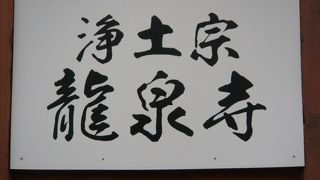 浄土宗
龍泉寺